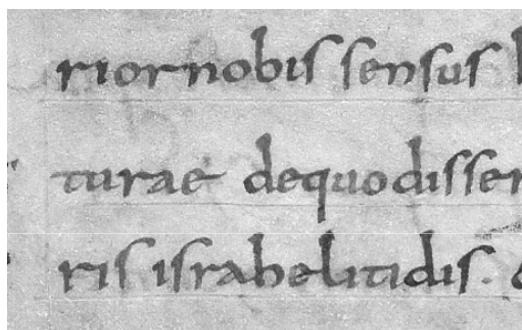 riornobis sensus
turae dequodisser
ris israhelitidis.